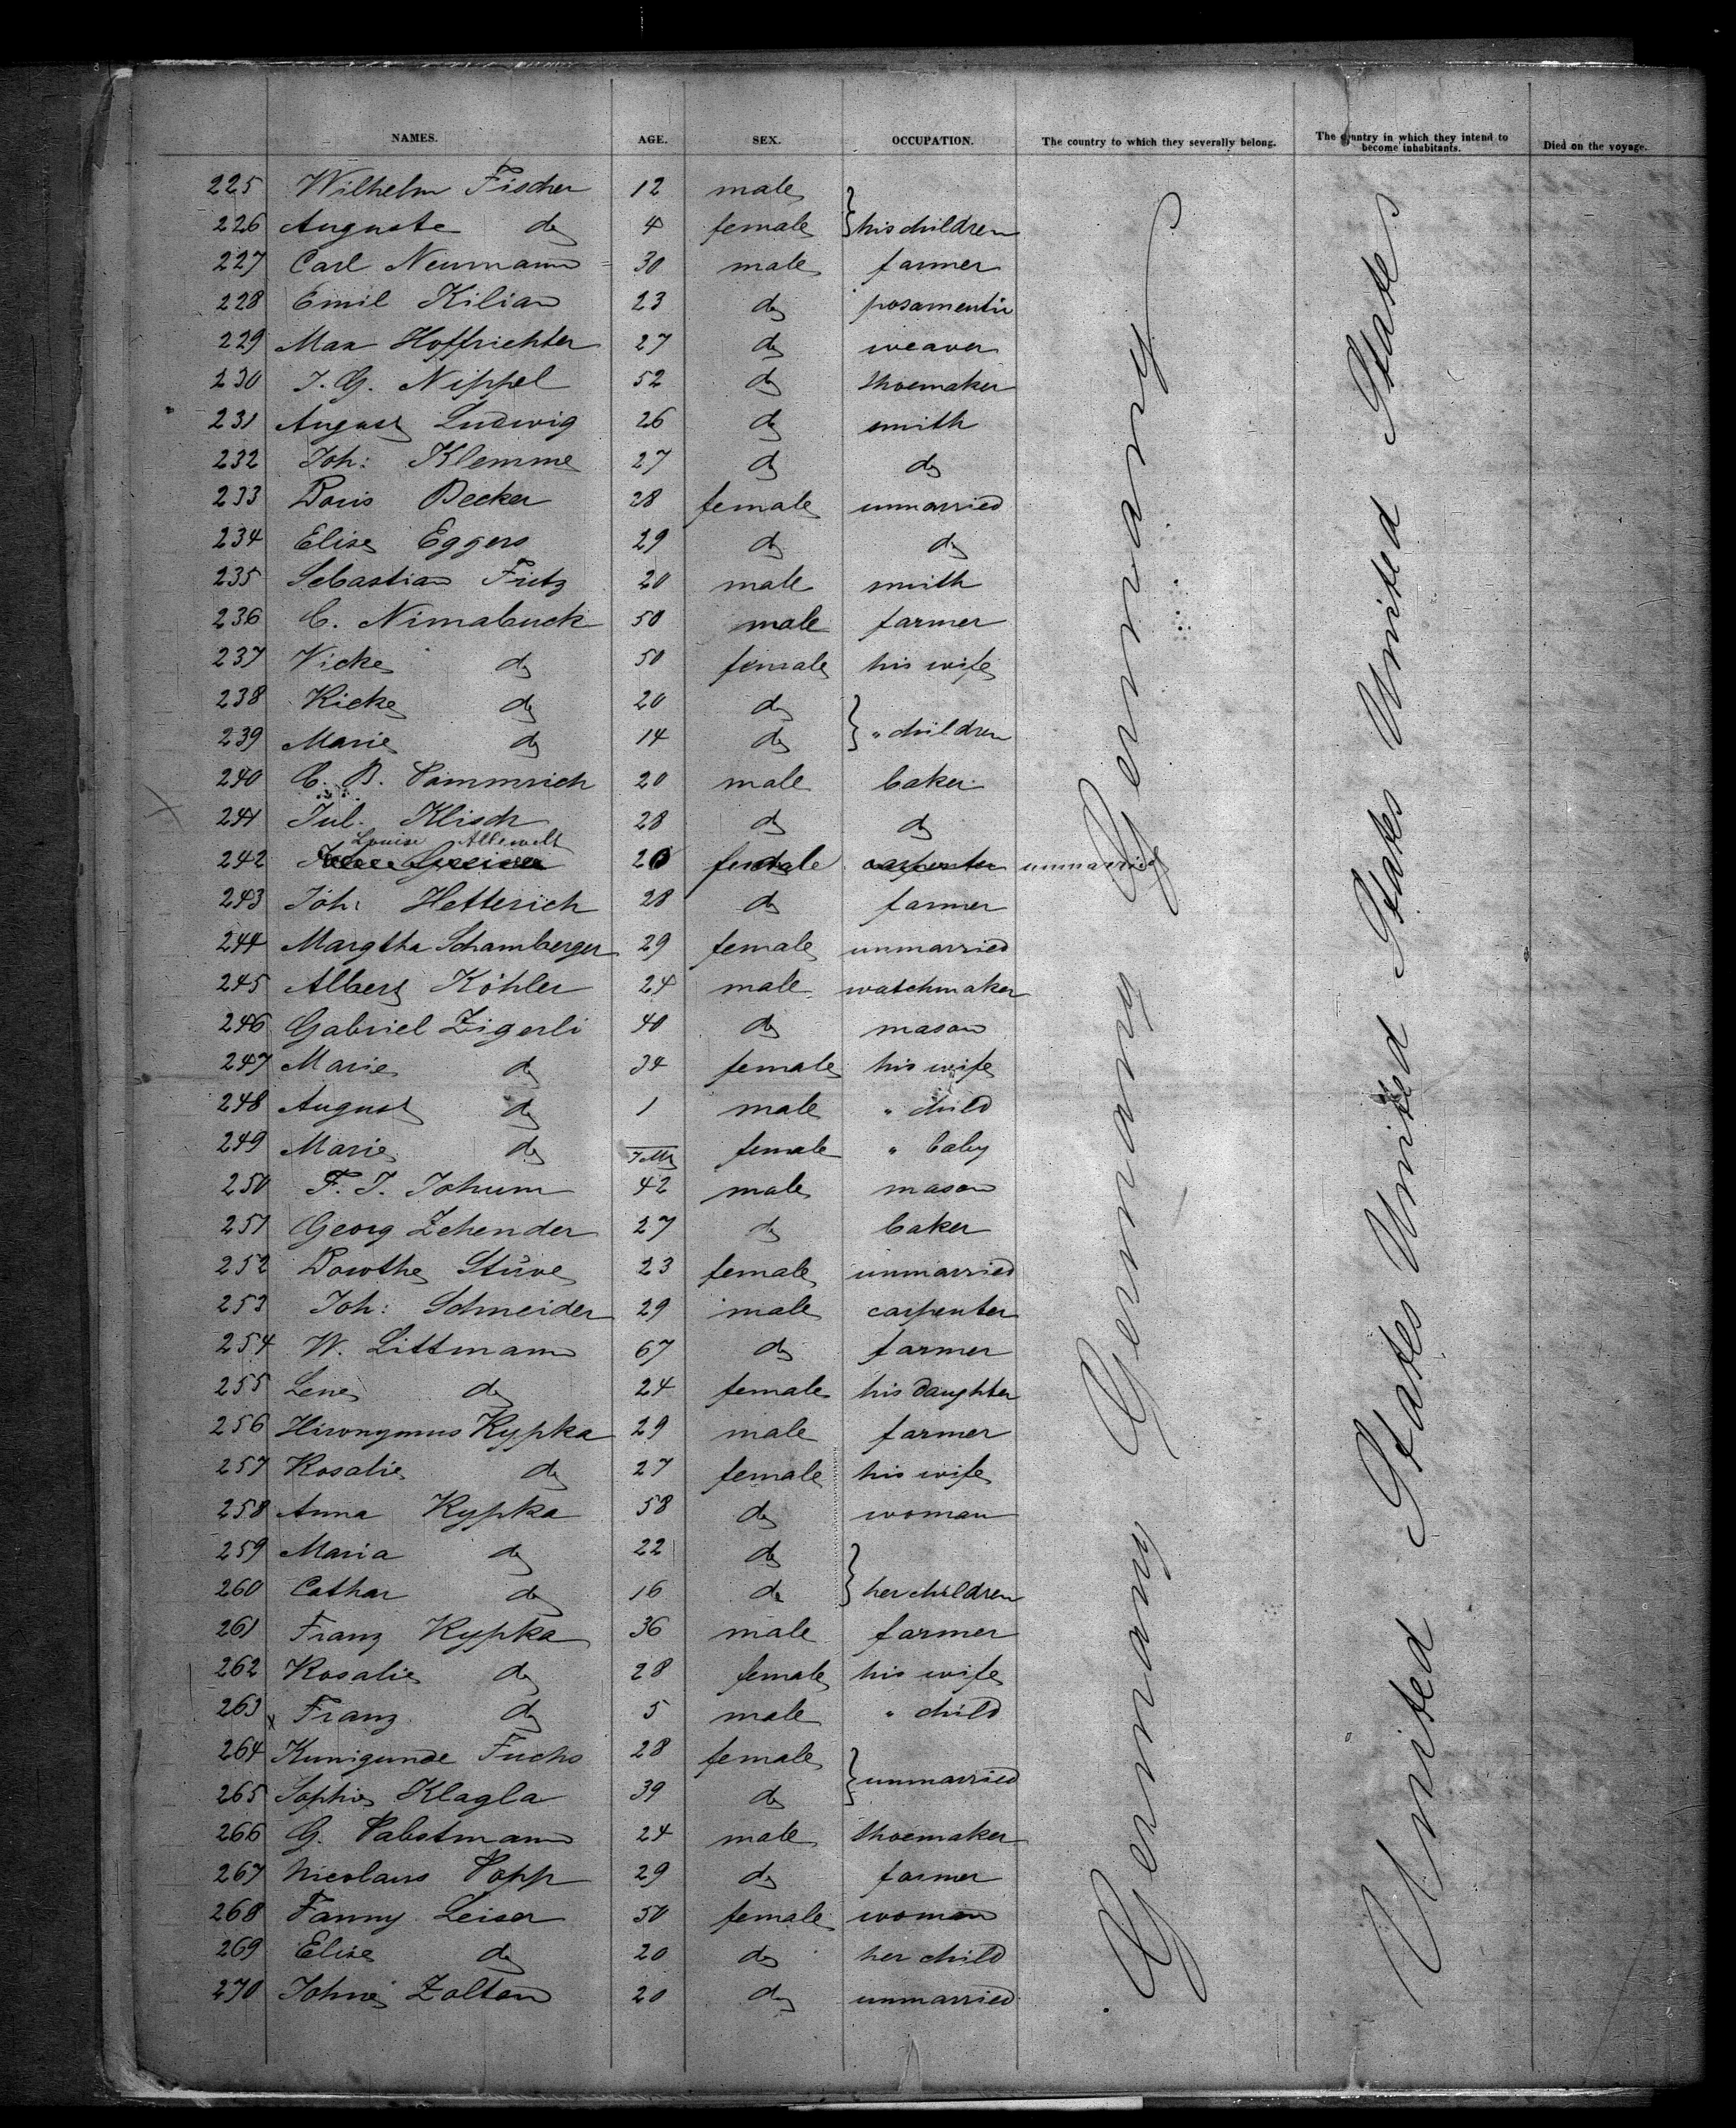 NAMES. AGE. SEX. OCCUPATION. The country to which they severally belong. The country in which they intend to become inhabitants. Died on the voyage.
225 Wilhelm Fischer 12 male
226 Auguste do 4 female } his children
227 Carl Neumann 30 male farmer
228 Emil Kilian 23 do posamentir
229 Max Hoffrichter 27 do weaver
230 J. G. Nippel 52 do shoemaker
231 August Ludwig 26 do smith
232 Joh: Klemme 27 do do
233 Doris Becker 28 female unmarried
234 Elise Eggers 29 do do
235 Sebastian Fritz 20 male smith
236 C. Nimabuck 50 male farmer
237 Vicke do 50 female his wife
238 Ricke do 20 do
239 Marie do 14 do } " children
240 C. B. Pammrich 20 male baker
241 Jul. Klisch 28 do do
Louise Allewelt
242 20 female carpenter unmarried
243 Joh: Hetterich 28 do farmer
244 Margtha Schamberger 29 female unmarried
245 Albert Köhler 24 male watchmaker
246 Gabriel Zigerli 40 do mason
247 Marie do 34 female his wife
248 August do 1 male " child
249 Marie do female " baby
250 F. J. Johum 42 male mason
251 Georg Zehender 27 do baker
252 Dorothe Stüve 23 female unmarried
253 Joh: Schneider 29 male carpenter
254 W. Littmann 67 do farmer
255 Lene do 24 female his daughter
256 Hironymus Kypka 29 male farmer
257 Rosalie do 27 female his wife
258 Anna Kypka 58 do woman
259 Maria do 22 do
260 Cathar do 16 do } her children
261 Franz Kypka 36 male farmer
262 Rosalie do 28 female his wife
263 Franz do 5 male " child
264 Kunigunde Fuchs 28 female
265 Sophie Klagla 39 do } unmarried
266 G. Pabstmann 24 male shoemaker
267 Nicolaus Popp 29 do farmer
268 Fanny Leiser 50 female woman
269 Elise do 20 do her child
270 Johne Zoltan 20 do unmarried
Germany Germany Germany
United States United States United States